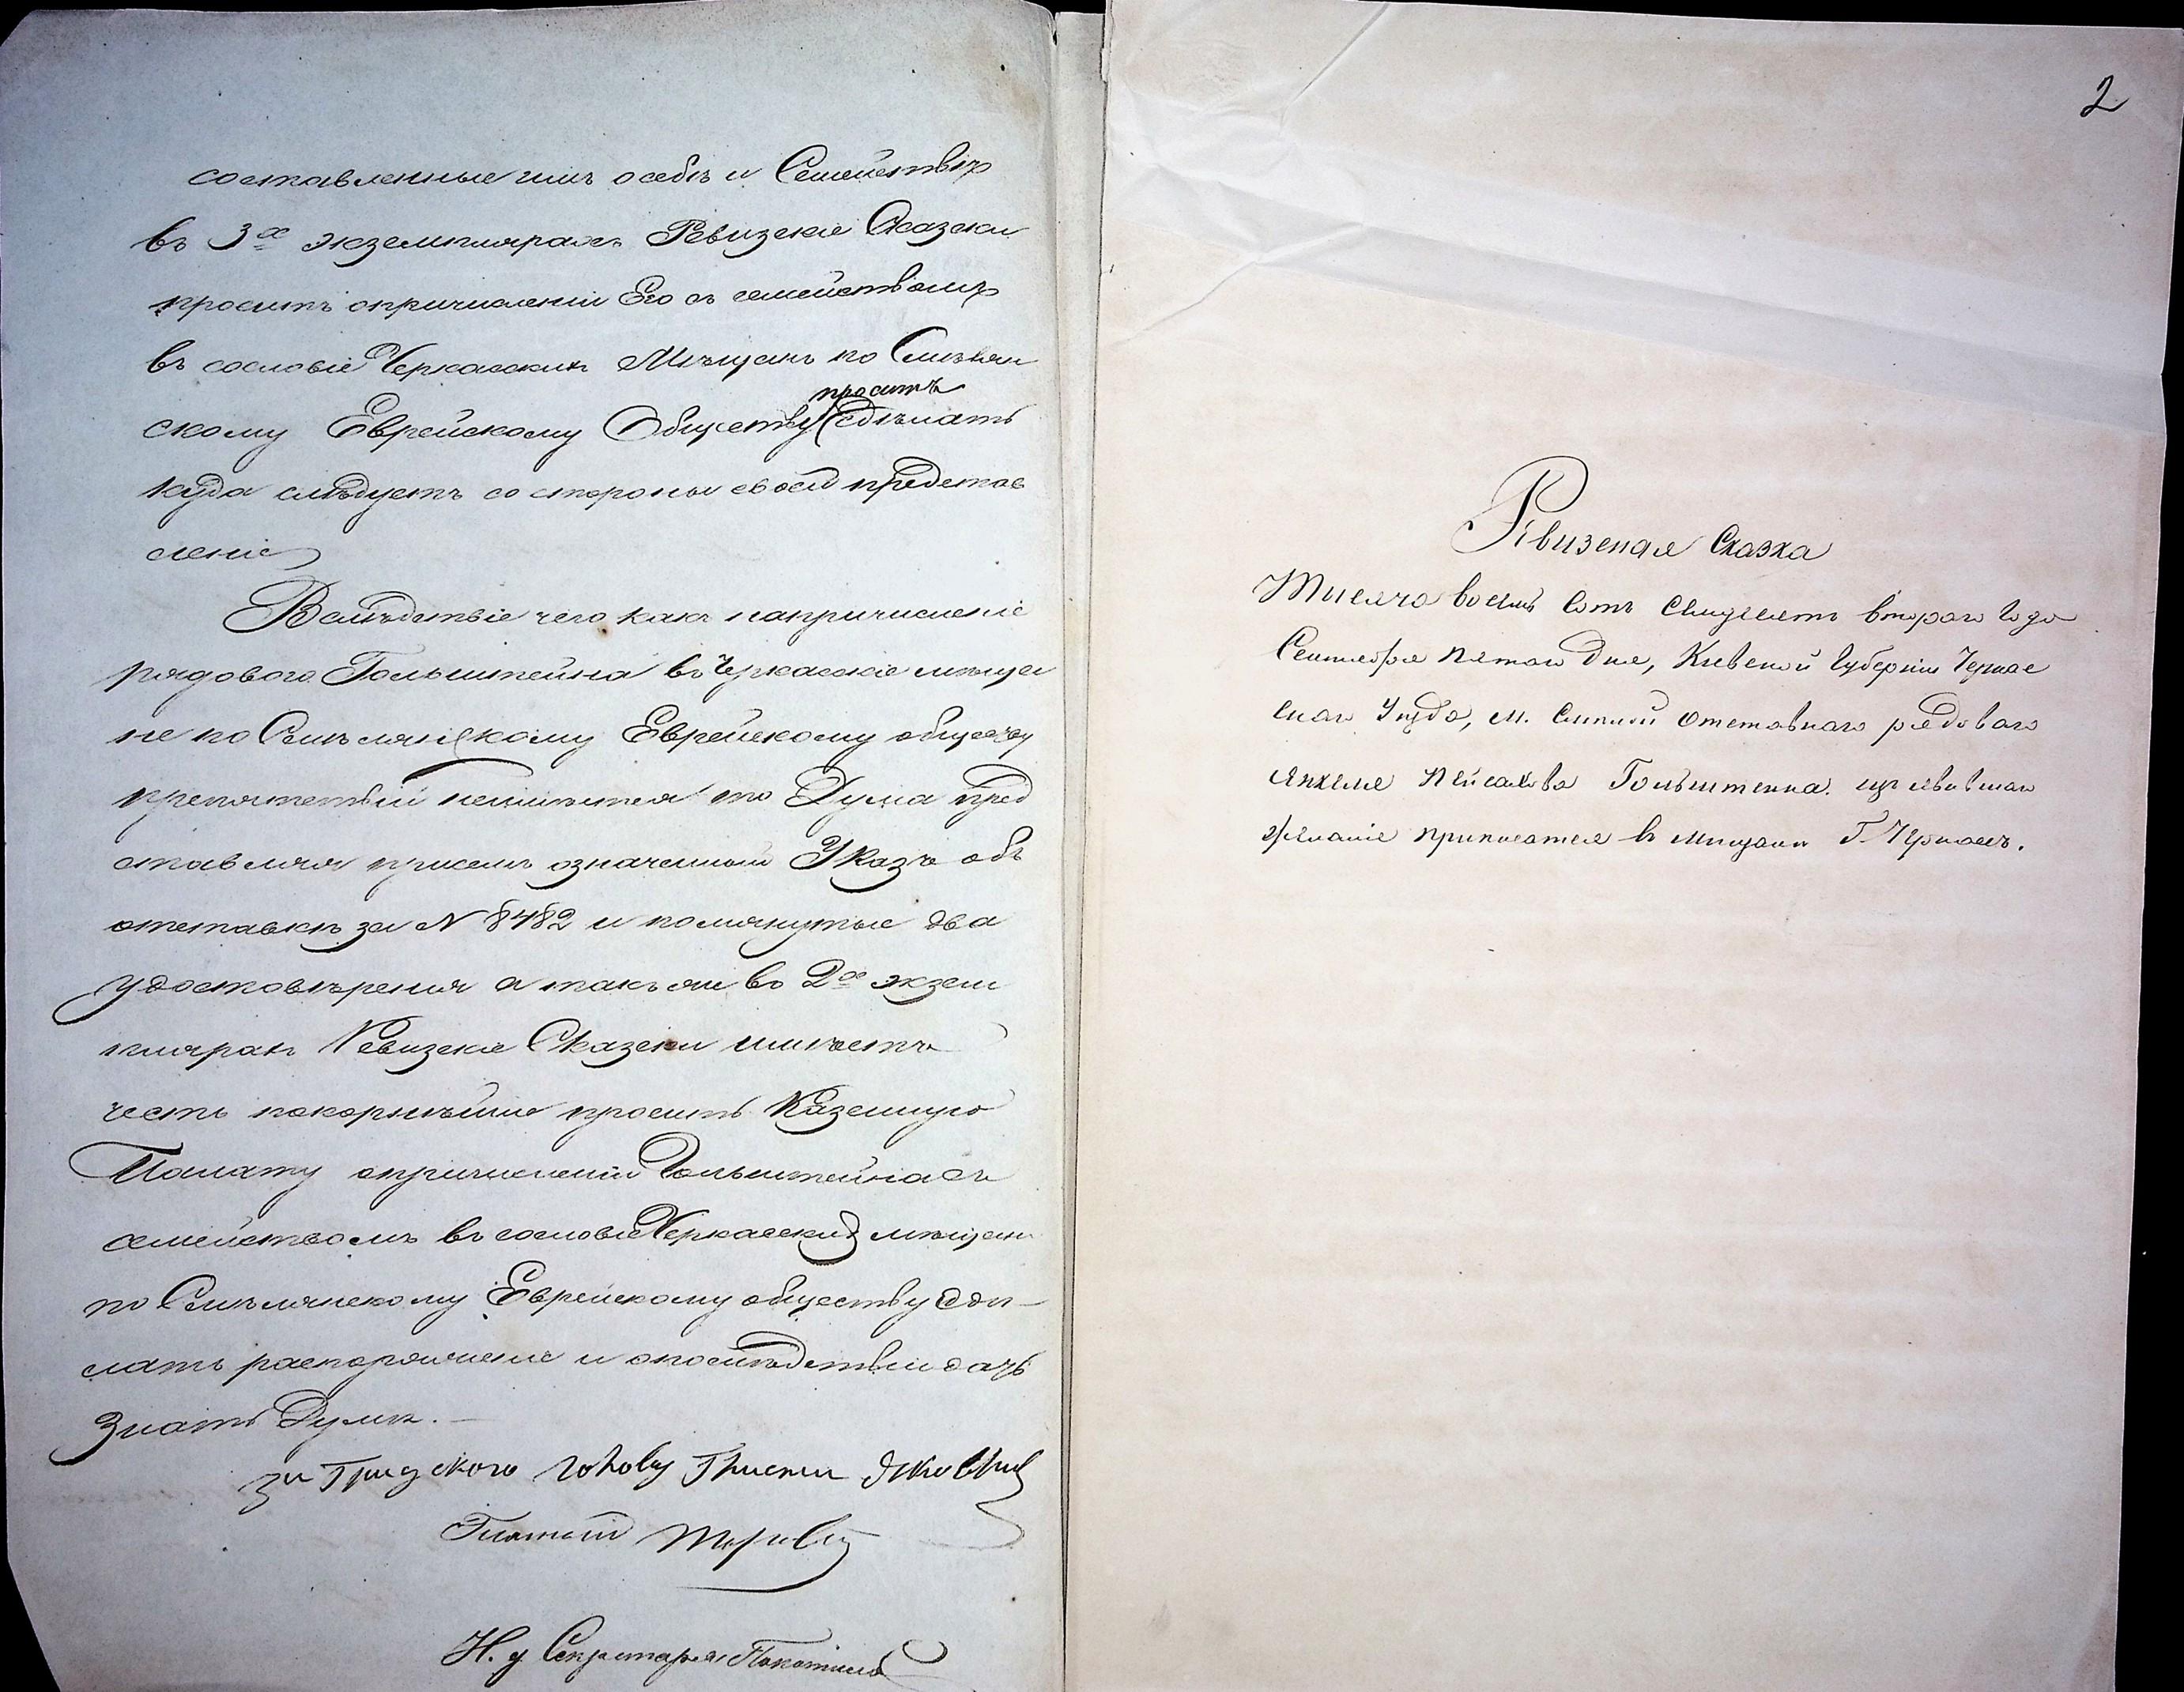 составленные имъ о себѣ и Семействѣ
въ 3х экземплярахъ Ревизскіе Сказски
проситъ опричисленіи Его съ семействомъ
въ сословіе Черкасскихъ Мѣщанъ по Смѣлян
проситъ
скому Еврейскому Обществу сдѣлать
куда слѣдуетъ со стороны своей представ
леніе
Вслѣдствіе чего какъ напричисленіе
рядового Гольштейна въ Черкаскіе мѣща
не по Смѣлянскому Еврейскому обществу
препятствій неимѣется то Дума пред
ставляя присемъ означенный Указъ объ
отставкѣ за N 8482 и помянутые два
удостовѣренія а такъ же въ 2х экзем
плярахъ Ревизскіе Сказски имѣетъ
честь покорнѣйше просить Казенную
Палату опричисленіи Гольштейна съ
семействомъ въ сословіе Черкасскихъ мѣщанъ
по Смѣлянскому Еврейскому обществу сдѣ-
лать распоряженіе и опослѣдствіи дать
знать Думѣ.-
за Градского голову
Гласный
И. д. Секретаря
2
Ревизская Сказка
Тысяча восемь сотъ семдесятъ втораго года
Сентебря пятаго дня, Кіевской Губерніи Черкас
скаго Уезда, м. Смелой отставнаго рядоваго
Янкеля Пейсахова Гольштенна. изъявившаго
желаніе приписатся въ мещани Г. Черкасъ.